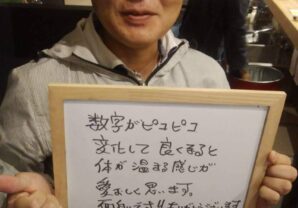 数字がピコピコ
変化して 良くなると
体が 温まる感じが
愛おしく思います。